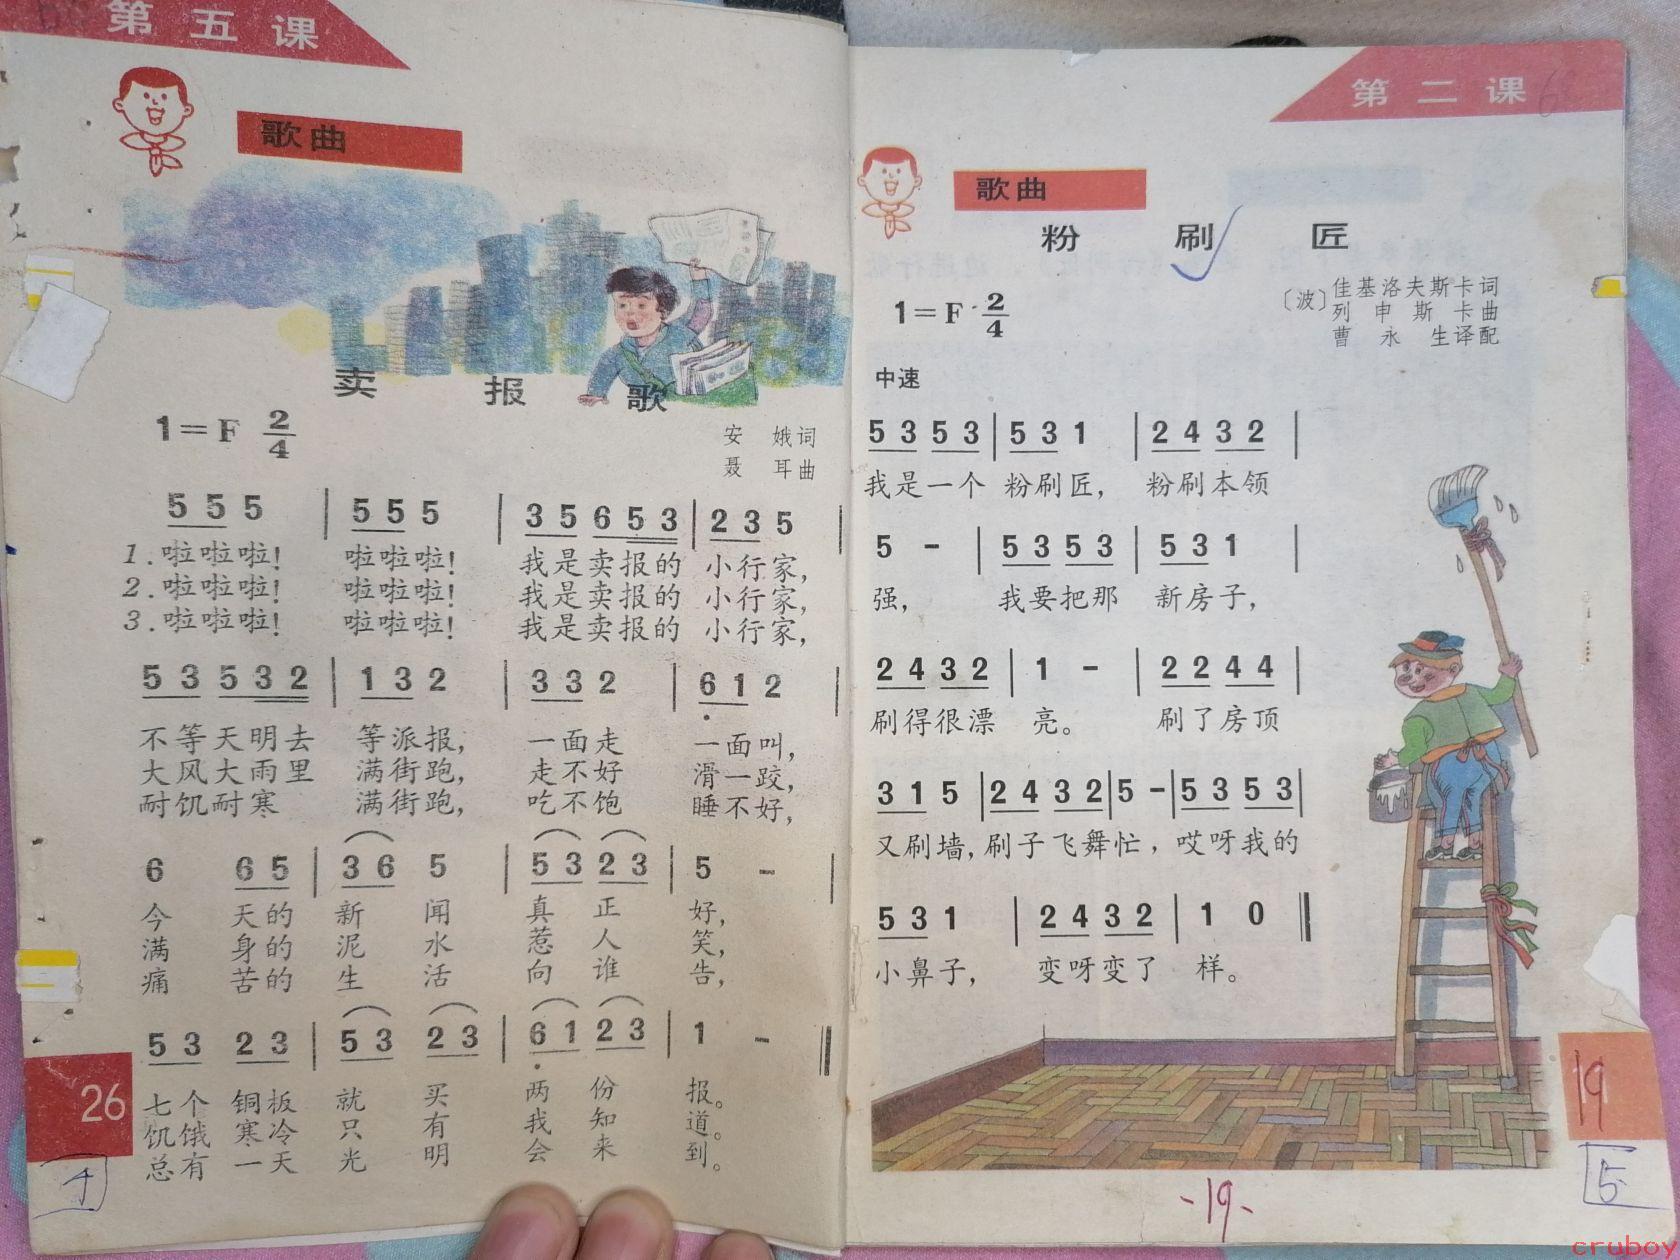 第五课
歌曲
卖报歌
1=F 2/4
安 娥词
聂 耳曲
5 5 5 | 5 5 5 | 3 5 6 5 3 | 2 3 5 |
1.啦啦啦! 啦啦啦! 我是卖报的 小行家,
2.啦啦啦! 啦啦啦! 我是卖报的 小行家,
3.啦啦啦! 啦啦啦! 我是卖报的 小行家,
5 3 5 3 2 | 1 3 2 | 3 3 2 | 6 1 2 |
不等天明去 等派报, 一面走 一面叫,
大风大雨里 满街跑, 走不好 滑一跤,
耐饥耐寒 满街跑, 吃不饱 睡不好,
6 6 5 | 3 6 5 | 5 3 2 3 | 5 - |
今 天的 新 闻 真 正 好,
满 身的 泥 水 惹 人 笑,
痛 苦的 生 活 向 谁 告,
5 3 2 3 | 5 3 2 3 | 6 1 2 3 | 1 - ‖
七个 铜板 就 买 两 份 报。
饥饿 寒冷 只 有 我 知 道。
总有 一天 光 明 会 来 到。
26
第二课
歌曲
粉刷匠
1=F 2/4
〔波〕佳基洛夫斯卡词
列申斯卡曲
曹永生译配
中速
5 3 5 3 | 5 3 1 | 2 4 3 2 |
我是一个 粉刷匠, 粉刷本领
5 - | 5 3 5 3 | 5 3 1 |
强, 我要把那 新房子,
2 4 3 2 | 1 - | 2 2 4 4 |
刷得很漂 亮。 刷了房顶
3 1 5 | 2 4 3 2 | 5 - | 5 3 5 3 |
又刷墙,刷子飞舞忙,哎呀我的
5 3 1 | 2 4 3 2 | 1 0 ‖
小鼻子, 变呀变了 样。
19
5
-19-
cruboy